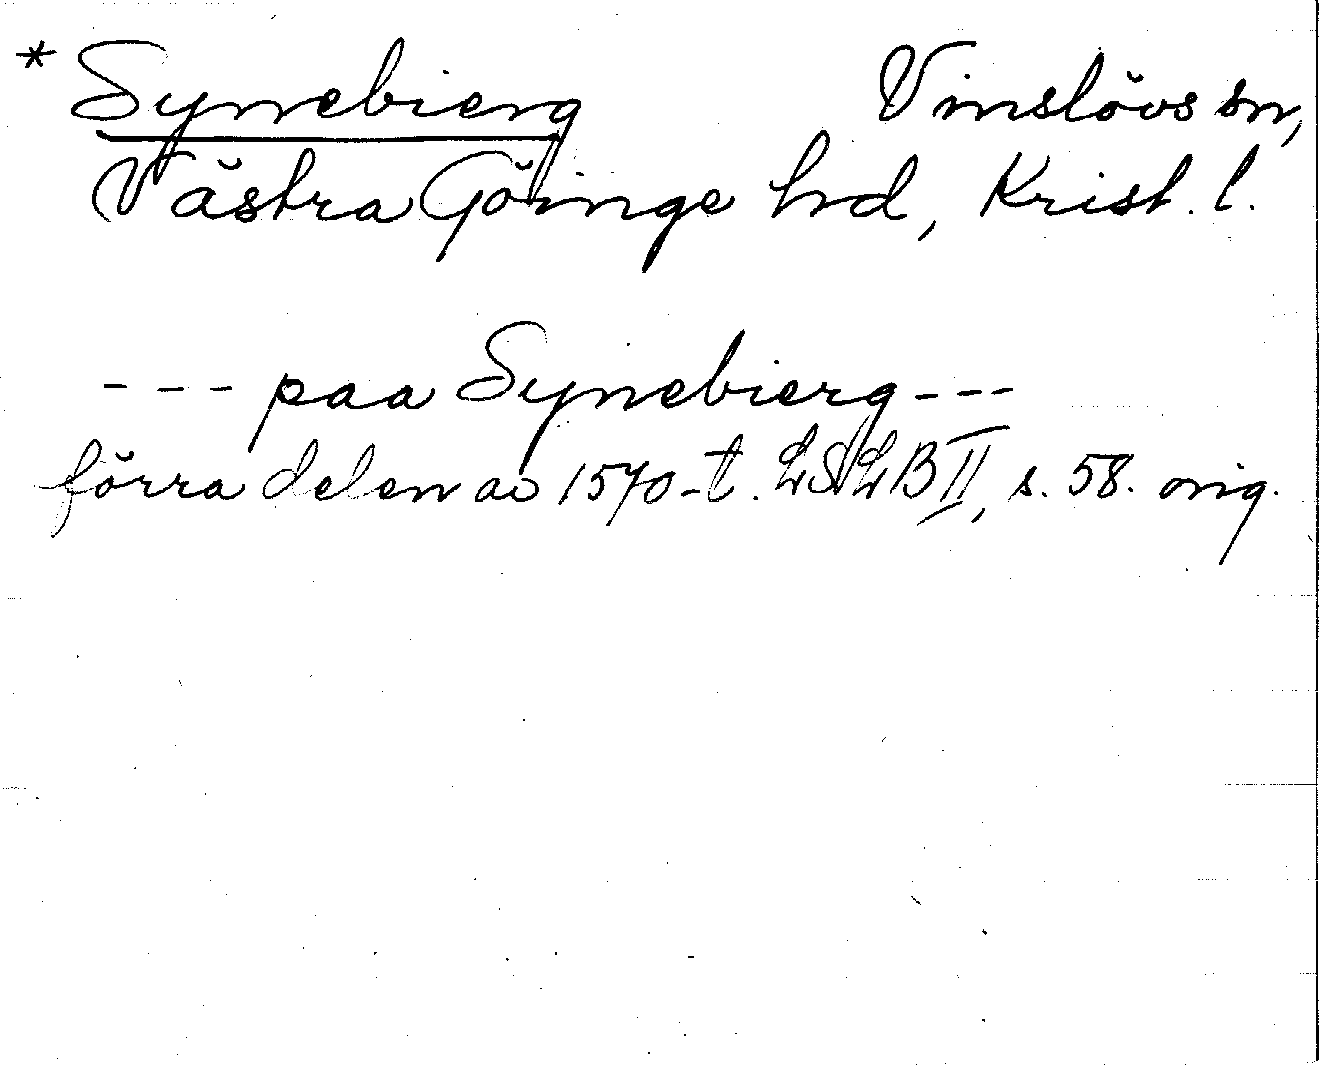 * Synebierg Vinslövs sn,
Västra Göinge hd, Krist. l.
--- paa Synebierg ---
förra delen av 1570-t. LSLB II, s. 58. orig.